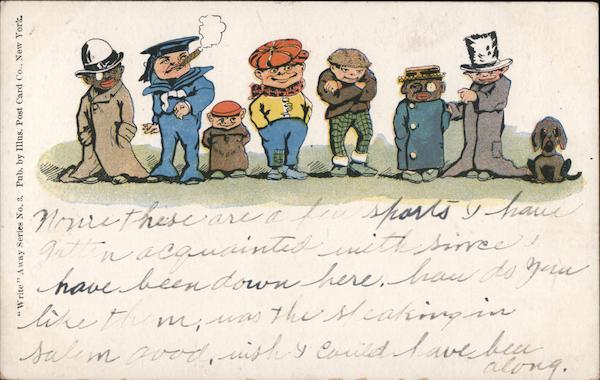 "Write" Away Series No. 3. Pub. by Illus. Post Card Co., New York.
these are a few sports I have
gotten acquainted with since I
have been down here. how do you
like them, was the skating in
salem good. wish I could have been
along.